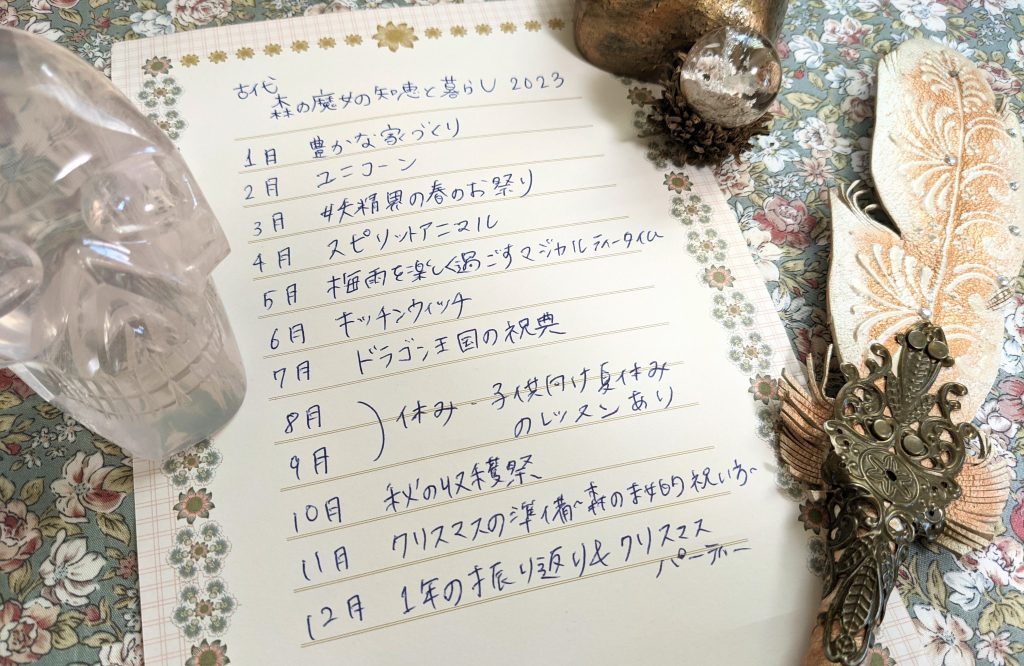 古代
森の魔女の知恵と暮らし 2023
1月 豊かな家づくり
2月 ユニコーン
3月 妖精界の春のお祭り
4月 スピリットアニマル
5月 梅雨を楽しく過ごすマジカルティータイム
6月 キッチンウィッチ
7月 ドラゴン王国の祝典
8月
9月
休み - 子供向け夏休み
のレッスンあり
10月 秋の収穫祭
11月 クリスマスの準備〜森の魔女的祝い方〜
12月 1年の振り返り&クリスマス
パーティー